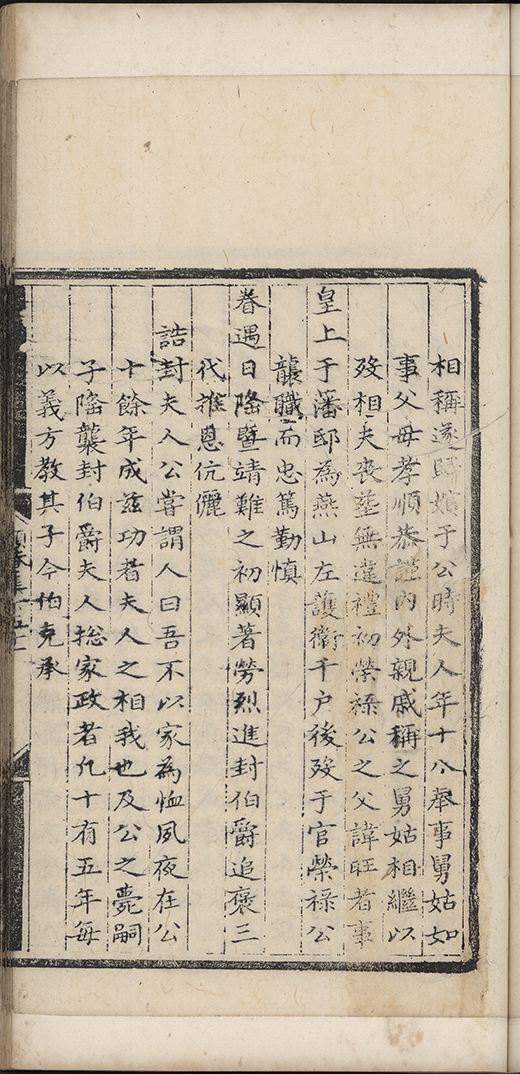 相稱遂歸嬪于公時夫人年十八奉事舅姑如
事父母孝順恭謹內外親戚稱之舅姑相繼以
歿相夫喪塟無違禮初榮祿公之父諱旺者事
皇上于藩邸為燕山左護衛千户後歿于官榮祿公
襲職而忠篤勤慎
眷遇日隆暨靖難之初顯著勞烈進封伯爵追褒三
代推恩伉儷
誥封夫人公嘗謂人曰吾不以家為恤夙夜在公
十餘年成茲功者夫人之相我也及公之薨嗣
子隆襲封伯爵夫人総家政者凢十有五年每
以義方教其子今伯克承